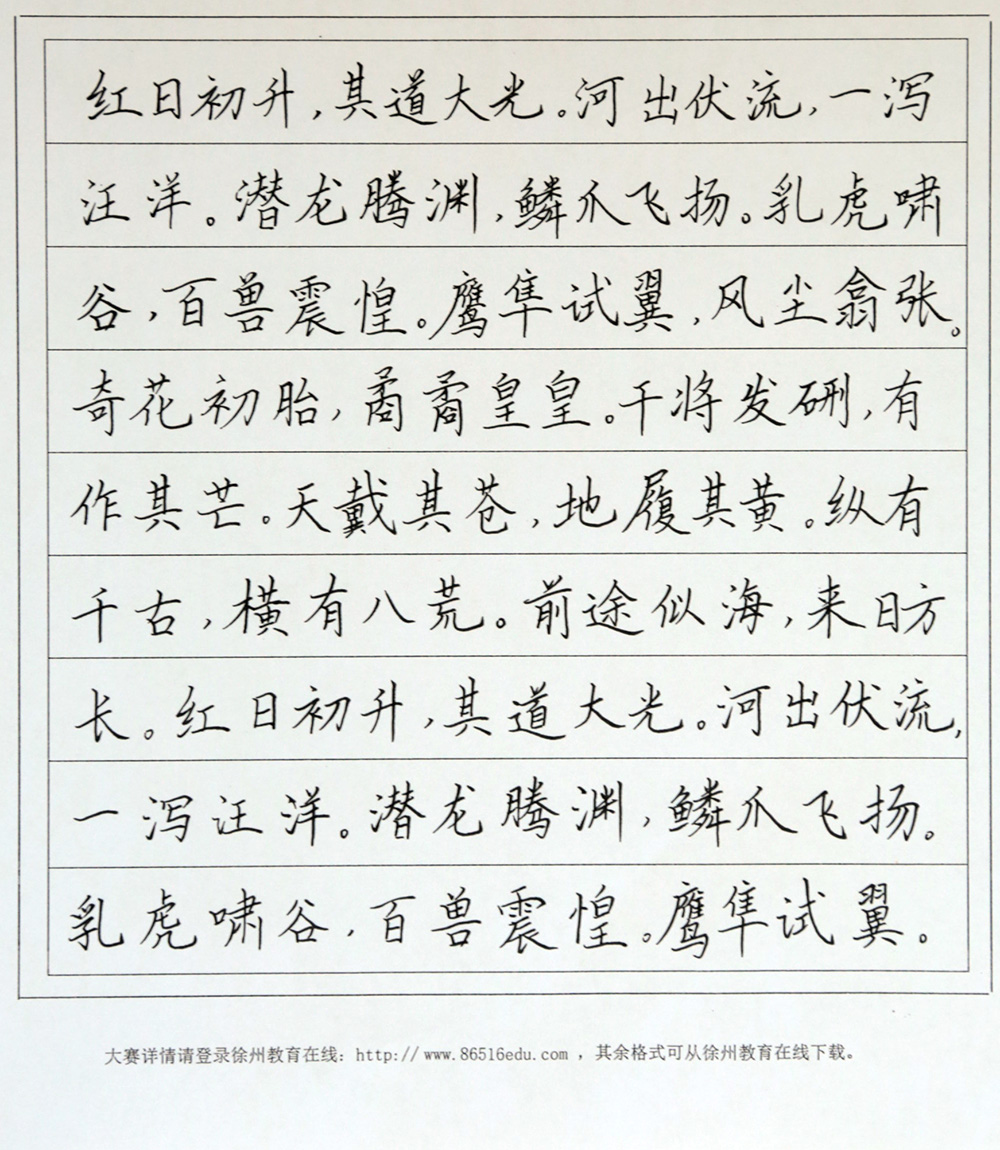 红日初升，其道大光。河出伏流，一泻
汪洋。潜龙腾渊，鳞爪飞扬。乳虎啸
谷，百兽震惶。鹰隼试翼，风尘翕张。
奇花初胎，矞矞皇皇。干将发硎，有
作其芒。天戴其苍，地履其黄。纵有
千古，横有八荒。前途似海，来日方
长。红日初升，其道大光。河出伏流，
一泻汪洋。潜龙腾渊，鳞爪飞扬。
乳虎啸谷，百兽震惶。鹰隼试翼。
大赛详情请登录徐州教育在线：http://www.86516edu.com ，其余格式可从徐州教育在线下载。